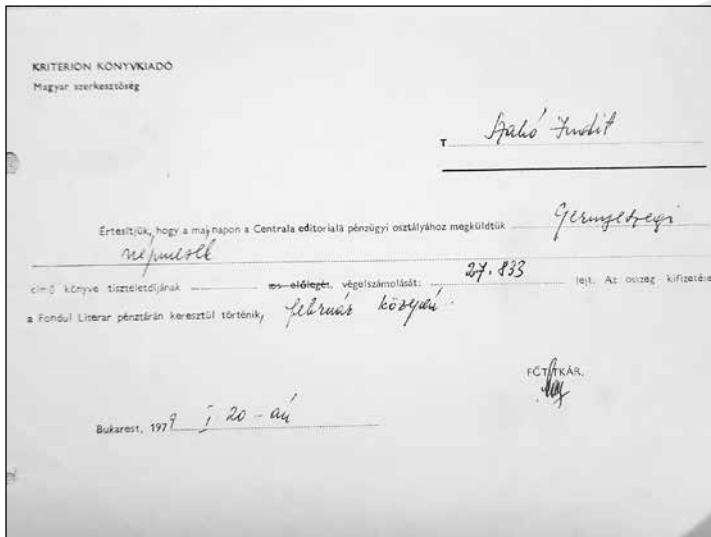 KRITERION KÖNYVKIADÓ
Magyar szerkesztőség
T. Szabó Judit
Értesítjük, hogy a mai napon a Centrala editorială pénzügyi osztályához megküldtük Gernyeszegi
népmesék
című könyve tiszteletdíjának os előlegét, végelszámolását: 27.833 lejt. Az összeg kifizetése
a Fondul Literar pénztárán keresztül történik, február közepén.
FŐTITKÁR,
Bukarest, 1979 I. 20-án